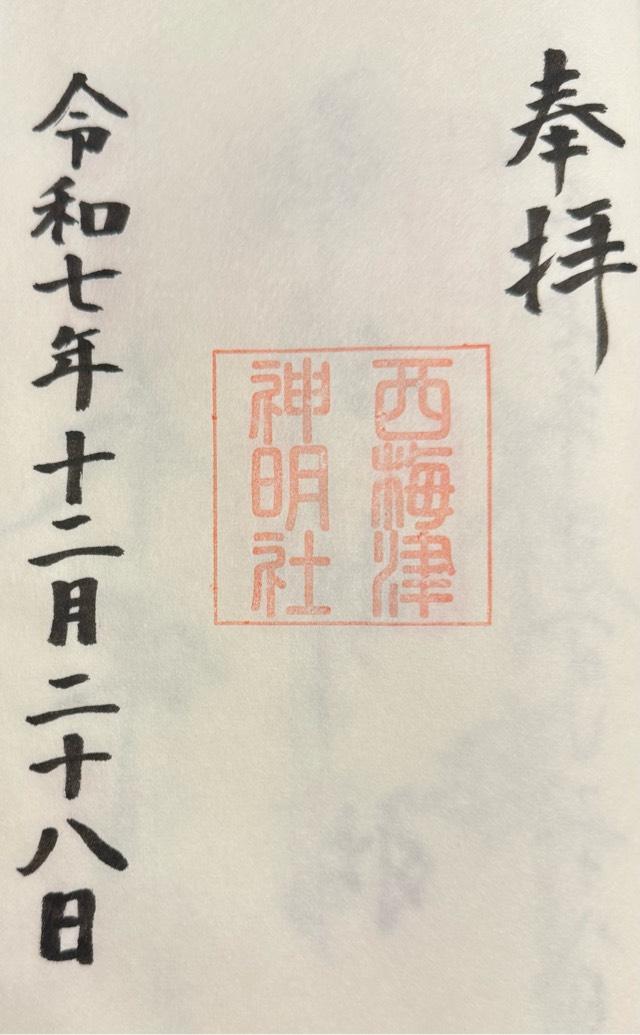 奉拝
西梅津
神明社
令和七年十二月二十八日